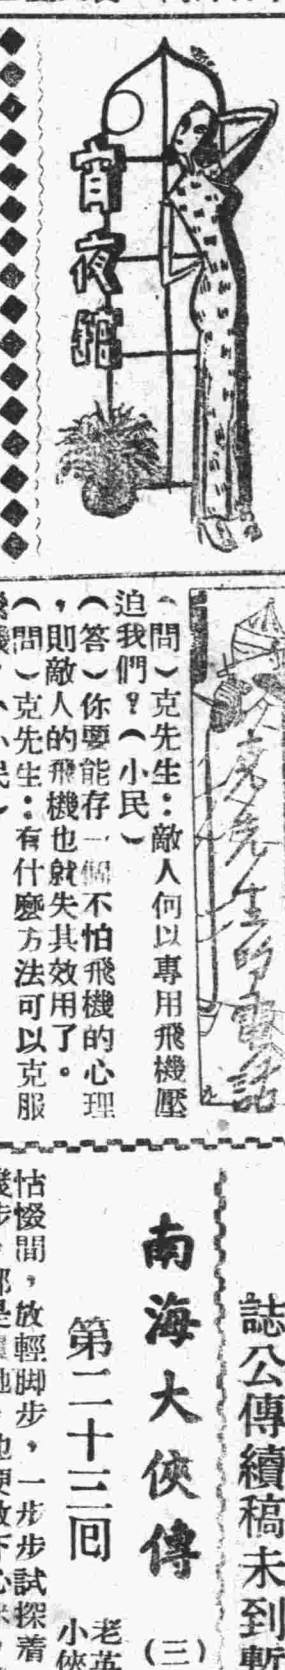 宵夜館
克先生的電話
（問）克先生：敵人何以專用飛機壓
迫我們？（小民）
（答）你要能存一個不怕飛機的心理
，則敵人的飛機也就失其效用了。
（問）克先生：有什麼方法可以克服
誌公傳續稿未到暫
南海大俠傳
（三）
第二十三囘
老英
小俠
怙惙間，放輕脚步，一步步試探着